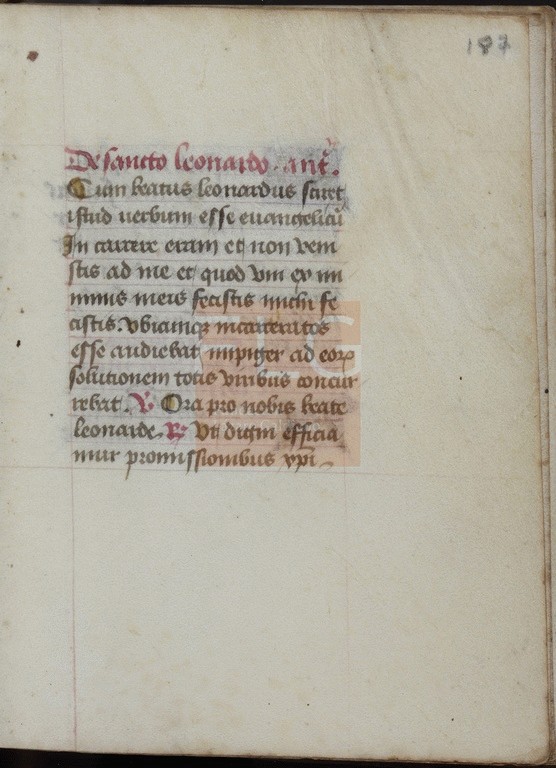 187
De sancto leonardo. ant̄.
Cum beatus leonardus sciret
istud uerbum esse euangelicū
In carcere eram et non veni
stis ad me et quod vni ex mi
nimis meis fecistis michi fe
cistis. vbicumqꝫ incarceratos
esse audiebat impiger ad eoꝝ
solutionem totis viribus concur
rebat. ℣. Ora pro nobis beate
leonarde. ℟. Vt digni efficia
mur promissionibus xp̄i